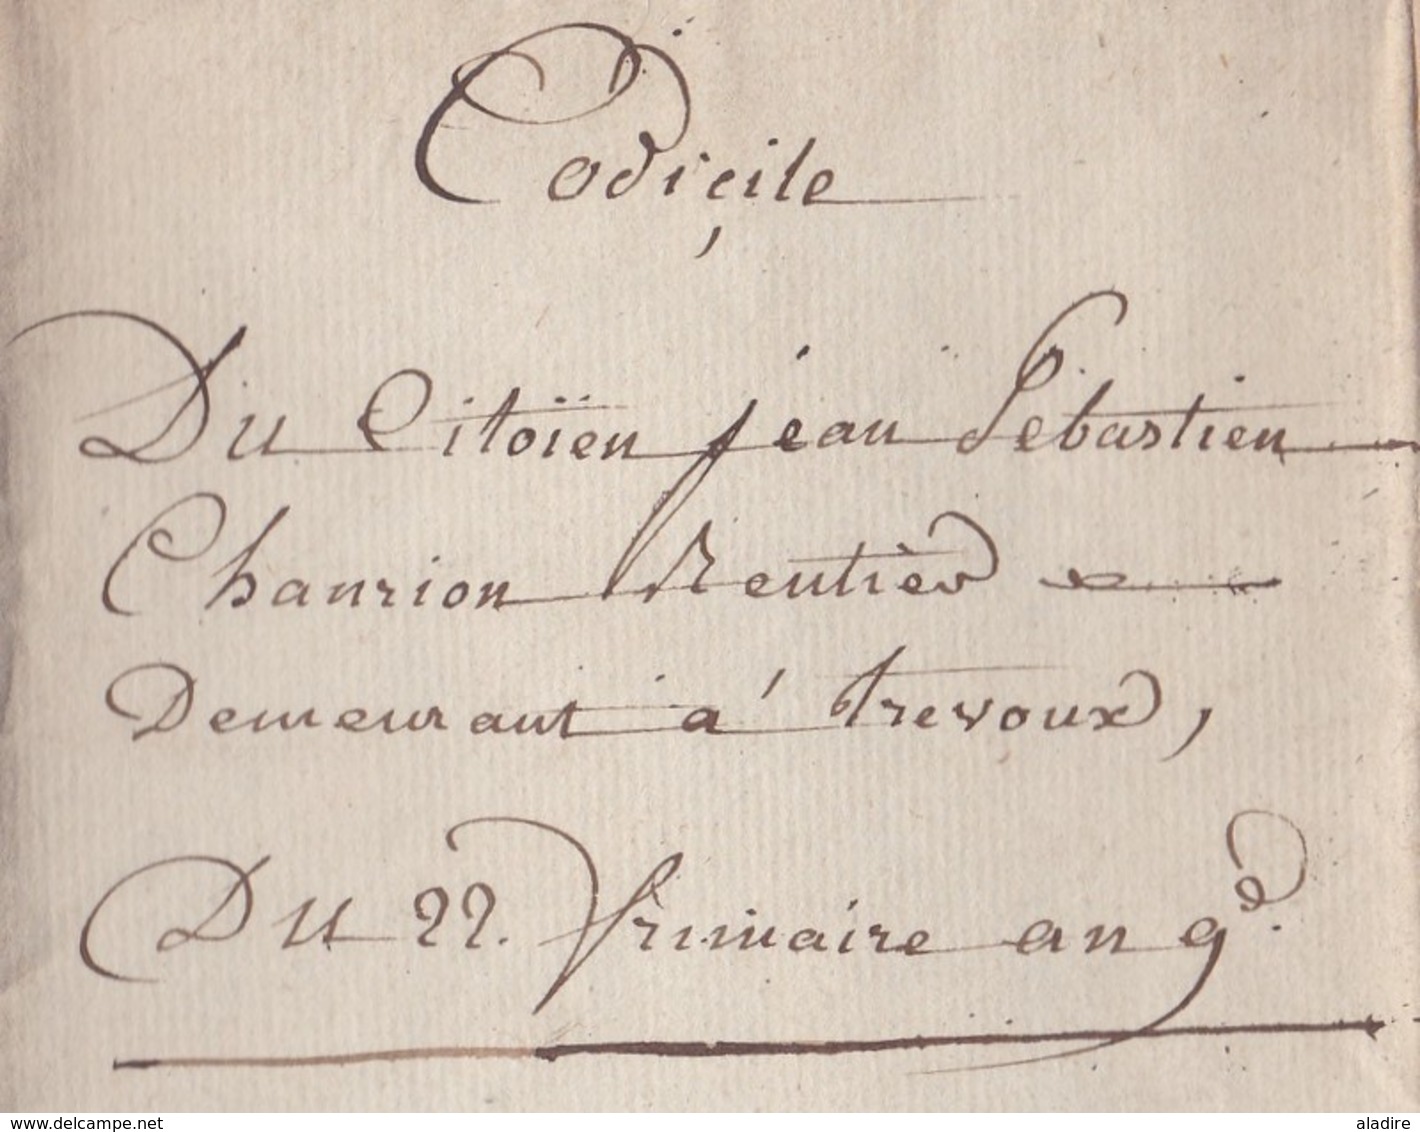 Codicile
Du Citoïen jean Sébastien
Chanrion Rentièr
Demeurant a' trevoux,
Du 22. frimaire an 9e.
www.delcampe.net
aladire